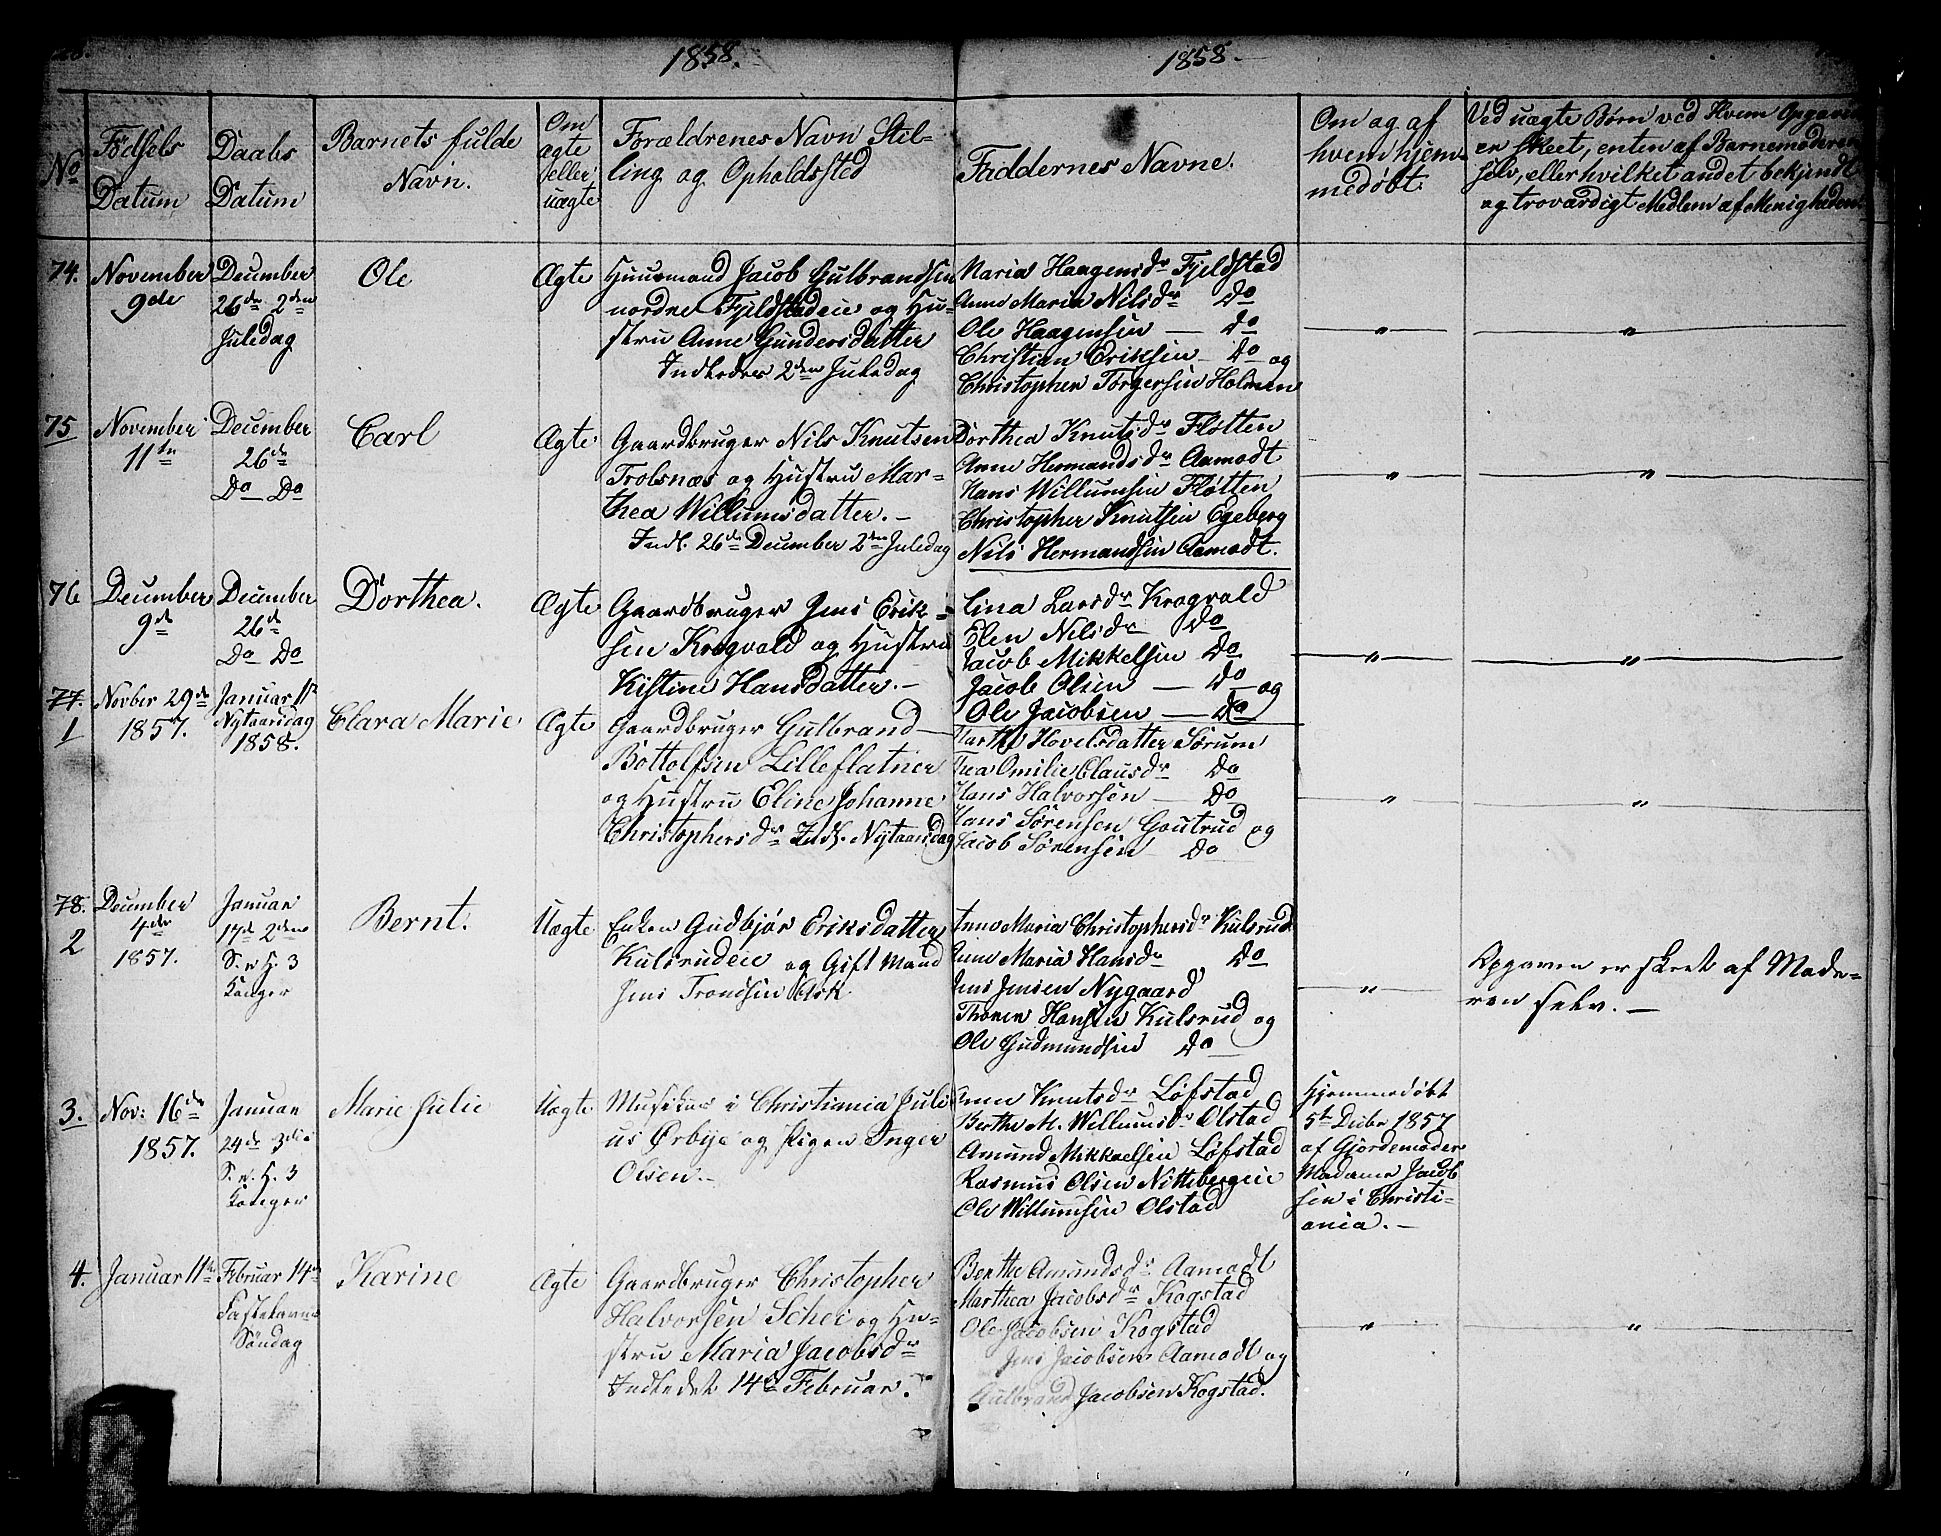 1858.
1858.
No
Fødsels Datum
Daabs Datum
Barnets fulde Navn.
Om ægte eller uægte
Forældrenes Navn Stilling og Opholdssted
Faddernes Navne.
Om og af hvem hjemmedøbt.
Ved uægte Børn ved Hvem Opgaven er skeet, enten af Barnemoderen selv, eller hvilket andet bekjendt og troværdigt Medlem af Menigheden.
74.
November
9de
December
26de 2den
Juledag
Ole
Ægte
Huusmand Jacob Gulbrandsen
nordre Fjeldstadeie og Hu-
stru Anne Gundersdatter
Indleder 2den Juledag
Maria Haagensdr Fjeldstad
Anne Maria Nilsdr Do
Ole Haagensen — Do
Christian Eriksen — Do og
Christopher Torgersen Holmen
"
"
75
November
11te
December
26de
Do Do
Carl
Ægte
Gaardbruger Nils Knutsen
Trolsnæs og Hustru Mar-
thea Willumsdatter. —
Indl. 26de December 2den Juledag
Dorthea Knutsdr Fløtten
Anne Hermandsdr Aamodt
Hans Willumsen Fløtten
Christopher Knutsen Egeberg
Nils Hermandsen Aamodt.
"
"
76
December
9de
December
26de
Do Do
Dorthea.
Ægte
Gaardbruger Jens Erik-
sen Krogvold og Hustru
Kistine Hansdatter. —
Lina Larsdr Krogvold
Elen Nilsdr Do
Jacob Mikkelsen Do
Jacob Olsen — Do og
Ole Jacobsen — Do
"
"
77.
1
Novber 29de
1857.
Januar 1ste
Nytaarsdag
1858.
Clara Marie
Ægte
Gaardbruger Gulbrand
Bottolfsen Lilleflatner
og Hustru Eline Johanne
Christophersdr Indl. Nytaarsdag
Marthe Hovelsdatter Sørum
Thea Omilie Clausdr Do
Hans Halvorsen — Do
Hans Sørensen Goutrud og
Jacob Sørensen Do
"
"
78.
2
December
4de
1857.
Januar
17de 2den
S. e. H. 3
Konger
Bernt.
Uægte
Enken Gudbjør Eriksdatter
Kulsrudeie og Gift Mand
Jens Trondsen Ask
Anne Maria Christophersdr Kulsrud
Anne Maria Hansdr Do
Jens Jensen Nygaard
Thorer Hansen Kulsrud og
Ole Gudmundsen Do
"
Opgaven er skeet af Mode-
ren selv. —
3.
Nov: 16de
1857.
Januar
24de 3die
S. e. H. 3
Konger
Marie Julie
Uægte
Musikus i Christiania Juli
us Ørbye og Pigen Inger
Olsen. —
Anne Knutsdr Løfstad
Berthe M. Willumsdr Olstad
Amund Mikkelsen Løfstad
Rasmus Olsen Nittebergeie
Ole Willumsen Olstad
Hjemmedøbt
5te Decbr 1857
af Gjordemoder
Madame Jacob
sen i Christi-
ania. —
4.
Januar 11te
Februar 14de
Fastelavns
Søndag
Karine
Ægte
Gaardbruger Christopher
Halvorsen Schei og Hu-
stru Maria Jacobsdr
Indledet 14de Februar.
Berthe Amundsdr Aamodt
Marthea Jacobsdr Kogstad
Ole Jacobsen Kogstad
Jens Jacobsen Aamodt og
Gulbrand Jacobsen Kogstad.
"
"